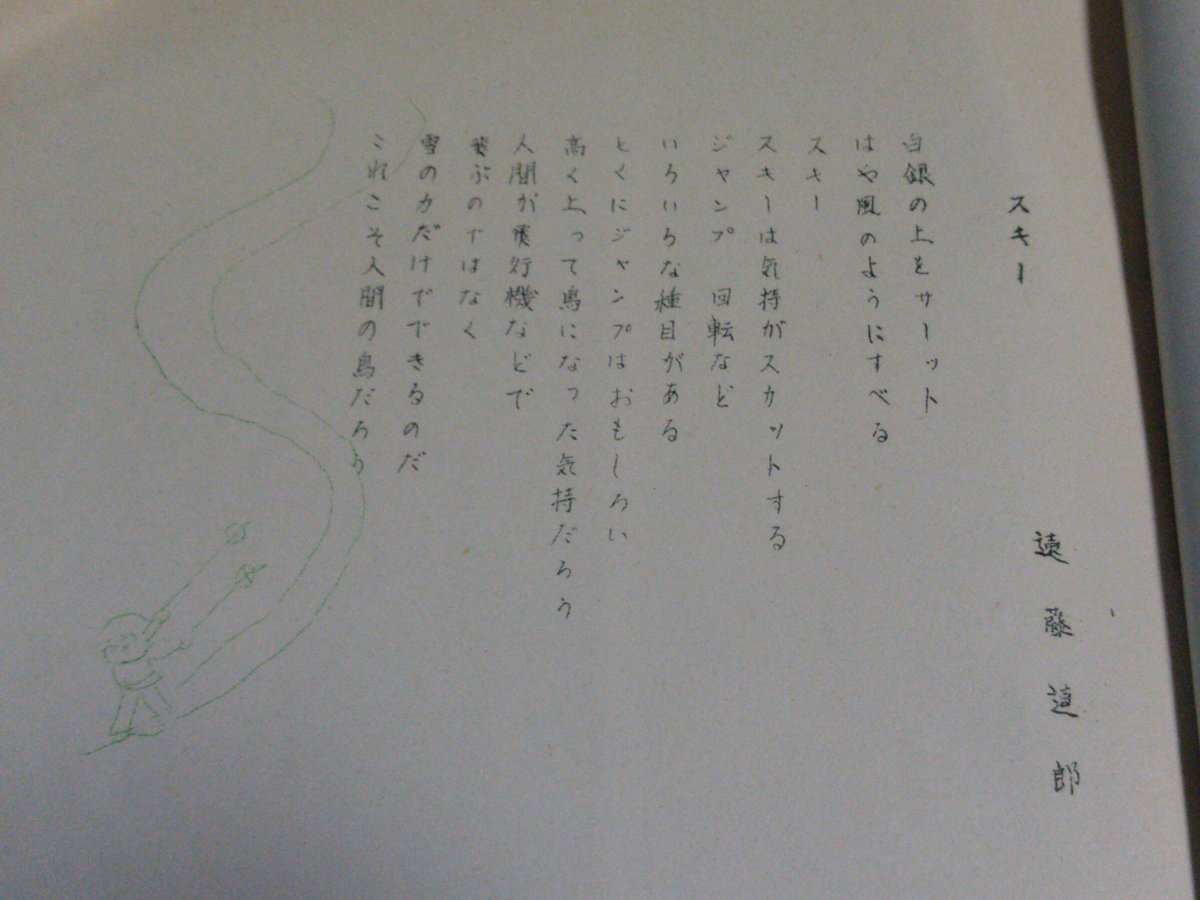 スキー
遠藤道郎
白銀の上をサーット
はや風のようにすべる
スキー
スキーは気持がスカットする
ジャンプ 回転など
いろいろな種目がある
とくにジャンプはおもしろい
高く上って鳥になった気持だろう
人間が飛行機などで
飛ぶのではなく
雪の力だけでできるのだ
これこそ人間の鳥だろう